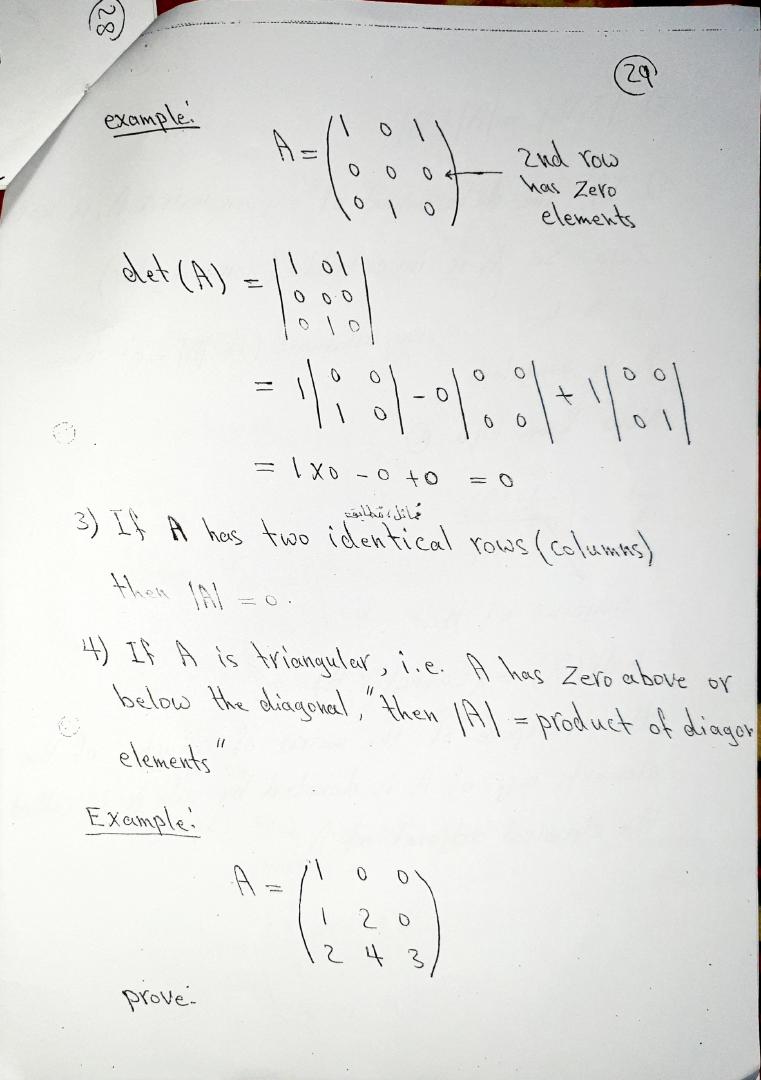 28
29
example:
A = (1 0 1
0 0 0
0 1 0) ← 2nd row
has Zero
elements
det (A) = |1 0 1
0 0 0
0 1 0|
= 1 |0 0
1 0| - 0 |0 0
0 0| + 1 |0 0
0 1|
= 1 x 0 - 0 + 0 = 0
3) If A has two identical rows (columns)
then |A| = 0.
4) If A is triangular, i.e. A has Zero above or
below the diagonal, "then |A| = product of diagon
elements"
Example:
A = (1 0 0
1 2 0
2 4 3)
prove: